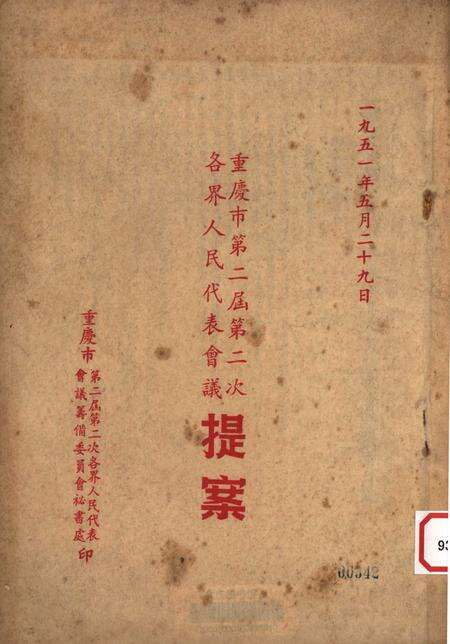 一九五一年五月二十九日
重慶市第二屆第二次
各界人民代表會議
提案
重慶市
第二屆第二次各界人民代表
會議籌備委員會祕書處
印
00342
93